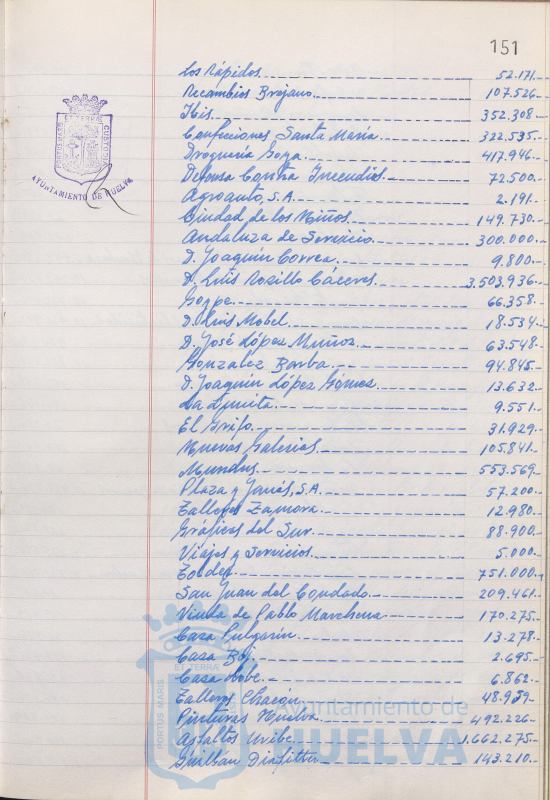 151
Los Rápidos 52.171.-
Recambios Brajano 107.526.-
Ibis 352.308.-
Confecciones Santa María 322.535.-
Droguería Goya 417.946.-
Defensa Contra Incendios 72.500.-
Agroauto, S.A. 2.191.-
Ciudad de los Niños 149.730.-
Andaluza de Servicio 300.000.-
D. Joaquín Correa 9.800.-
D. Luis Rosillo Cáceres 3.503.936.-
66.358.-
D. Luis Mobel 18.534.-
D. José López Muñoz 63.548.-
Gonzalez Barba 94.845.-
D. Joaquín López Gómez 13.632.-
La 9.551.-
El Grifo 31.929.-
Nuevas Galerías 105.841.-
Mundus 553.569.-
Plaza y Janés, S.A. 57.200.-
Talleres Zamora 12.980.-
Gráficas del Sur 88.900.-
Viajes y Servicios 5.000.-
751.000.-
San Juan del Condado 209.461.-
Viuda de Pablo Marchena 170.275.-
Casa Pulgarín 13.278.-
Casa 2.695.-
Casa 6.862.-
Talleres Chacón 48.939.-
Pinturas Huelva 492.226.-
Asfaltos Uribe 1.662.275.-
Guillén 143.210.-
PORTUS MARIS ET TERRAE CUSTODIA
AYUNTAMIENTO DE HUELVA
PORTUS MARIS ET TERRAE
Ayuntamiento de
HUELVA